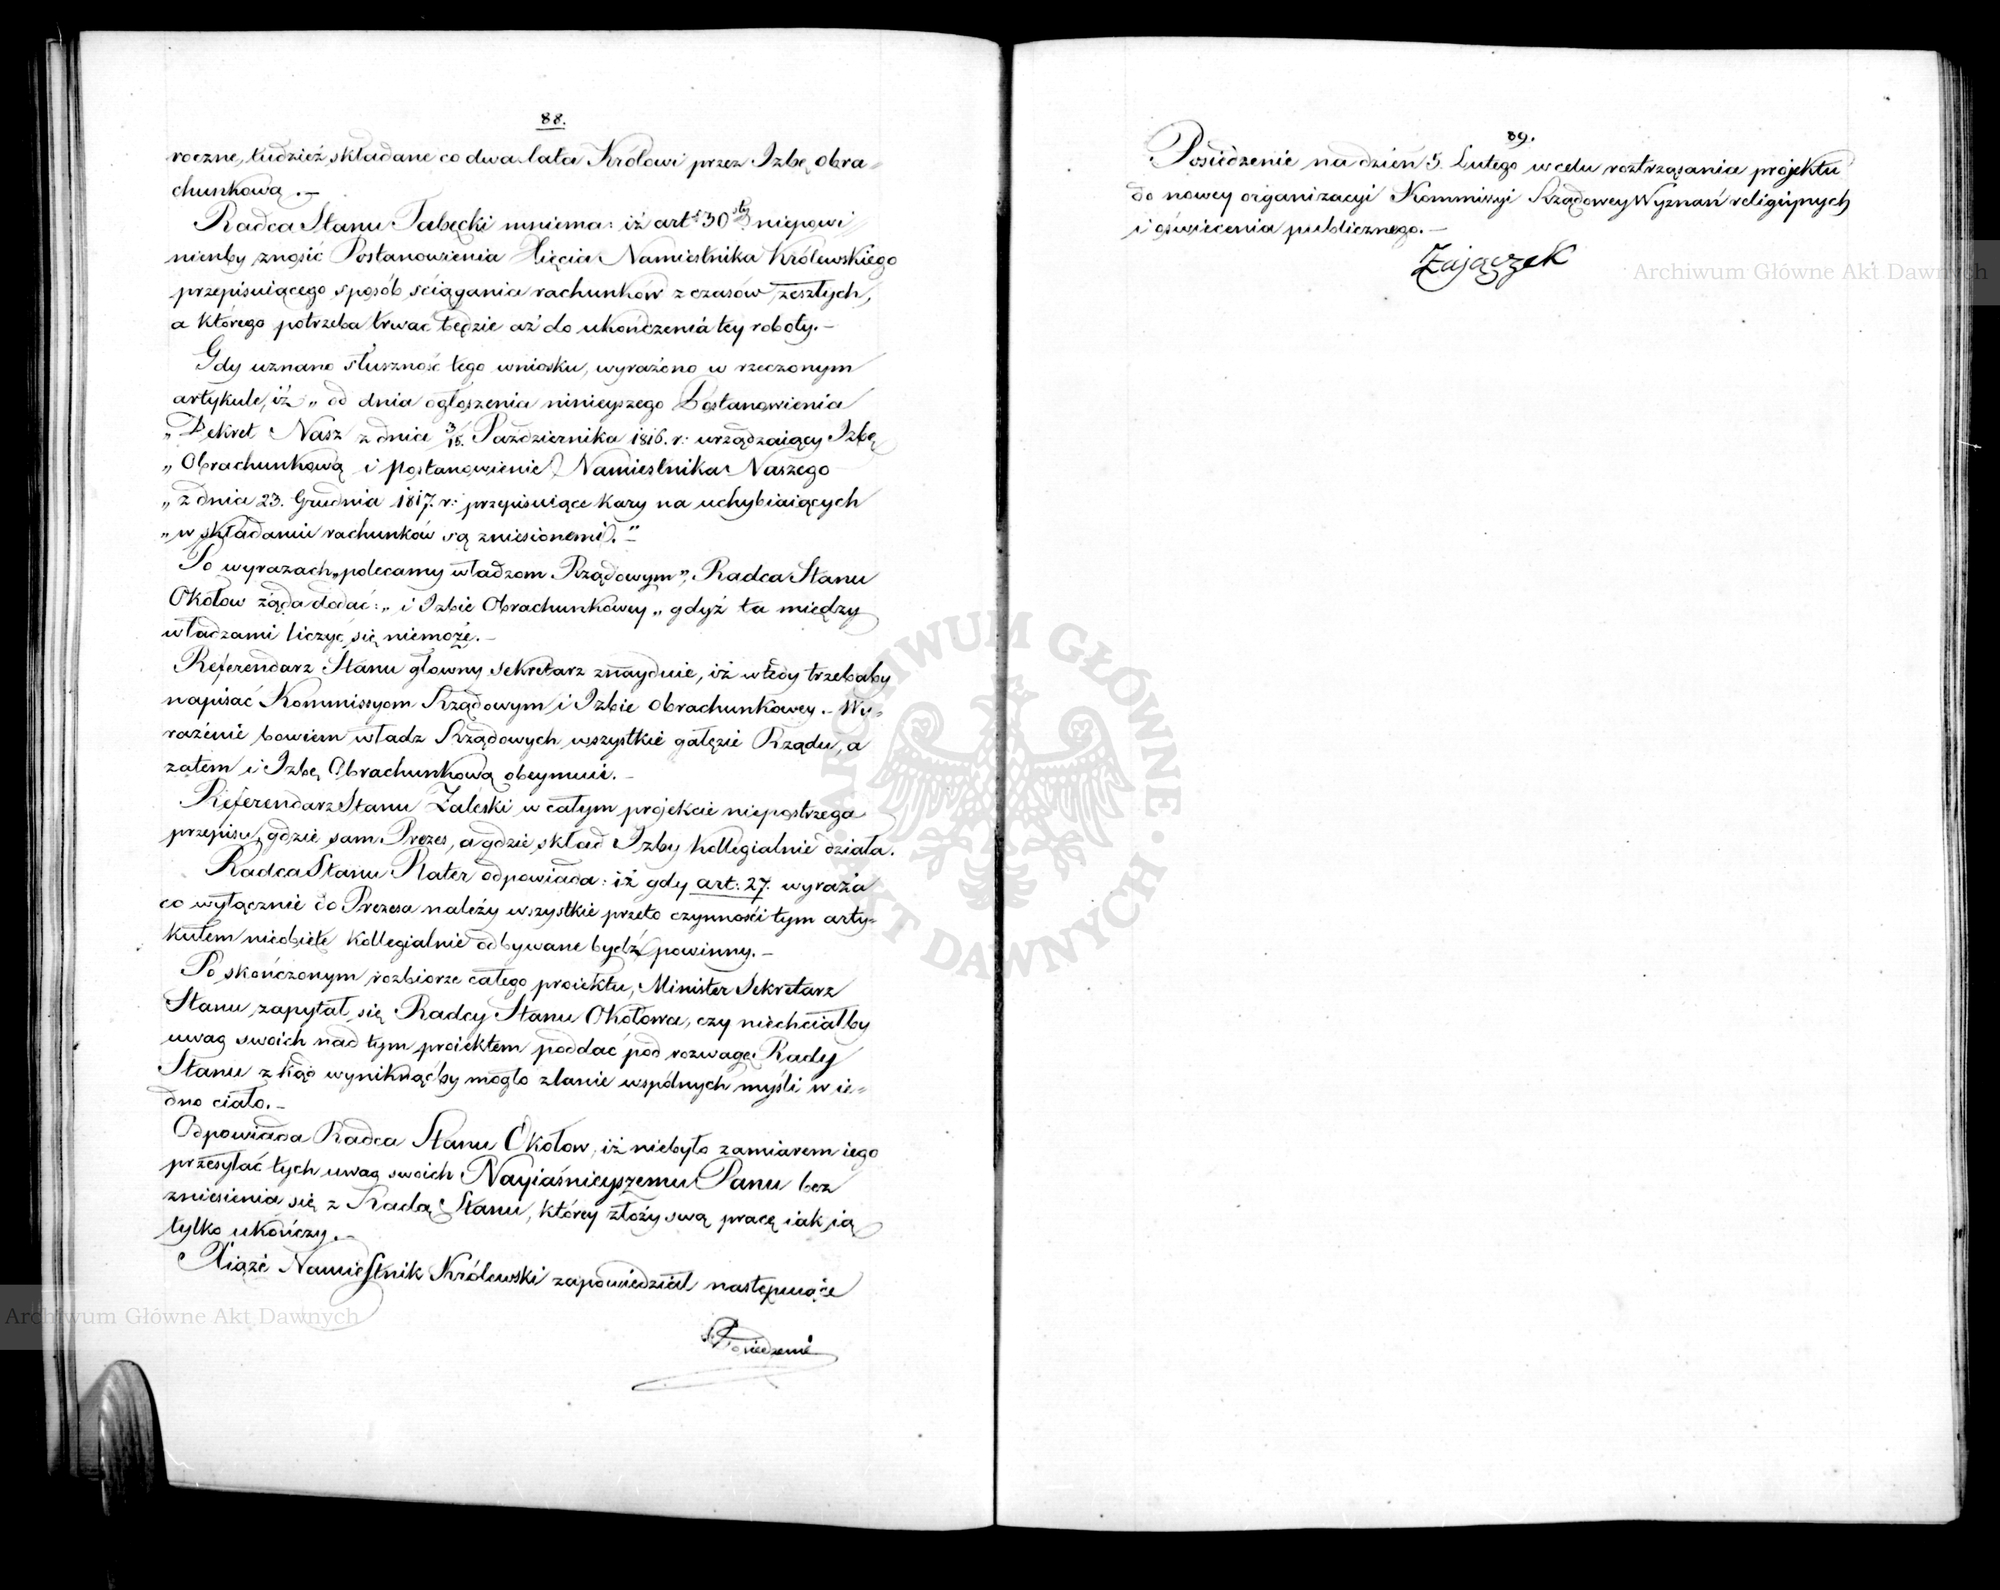 88.
roczne, tudzież składane co dwa lata Królowi przez Izbę obra-
chunkową.-
Radca Stanu Tabęcki mniema: iż art: 30sty niepowi
nienby znosić Postanowienia Xięcia Namiestnika Królewskiego
przepisuiącego sposób ściągania rachunków z czasów zeszłych,
a którego potrzeba trwać będzie aż do ukończenia tey roboty.-
Gdy uznano słuszność tego wniosku, wyrażono w rzeczonym
artykule, iż „od dnia ogłoszenia ninieyszego Postanowienia
„Dekret Nasz z dnia 3/15. Października 1816. r: urządzaiący Izbę
„Obrachunkową i postanowienie Namiestnika Naszego
„z dnia 23. Grudnia 1817. r: przepisuiące kary na uchybiaiących
„w składaniu rachunków są zniesionemi."-
Po wyrazach „polecamy władzom Rządowym", Radca Stanu
Okołow żąda dodać: „i Izbie Obrachunkowey„ gdyż ta między
władzami liczyć się niemoże.-
Referendarz Stanu główny sekretarz znayduie, iż wtedy trzebaby
napisać Kommissyom Rządowym i Izbie obrachunkowey.- Wy-
rażenie bowiem władz Rządowych wszystkie gałęzie Rządu, a
zatem i Izbę Obrachunkową obeymuie.-
Referendarz Stanu Zaleski w całym projekcie niepostrzega
przepisu, gdzie sam Prezes, a gdzie skład Izby kollegialnie działa.
Radca Stanu Plater odpowiada: iż gdy art: 27. wyraża
co wyłącznie do Prezesa należy wszystkie przeto czynności tym arty-
kułem nieobięte kollegialnie odbywane bydź powinny.-
Po skończonym rozbiorze całego proiektu, Minister Sekretarz
Stanu zapytał się Radcy Stanu Okołowa, czy niechciałby
uwag swoich nad tym proiektem poddać pod rozwagę Rady
Stanu z kąd wyniknąćby mogło zlanie wspólnych myśli w ie-
dno ciało.-
Odpowiada Radca Stanu Okołow, iż niebyło zamiarem iego
przesyłać tych uwag swoich Nayiaśnieyszemu Panu bez
zniesienia się z Radą Stanu, którey złoży swą pracę iak ią
tylko ukończy.-
Xiąże Namiestnik Królewski zapowiedział następuiące
Posiedzenie
89.
Posiedzenie na dzień 5. Lutego w celu roztrząsania projektu
do nowey organizacyi Kommissyi Rządowey Wyznań religijnych
i oświecenia publicznego.-
Zajączek
Archiwum Główne Akt Dawnych
Archiwum Główne Akt Dawnych
· ARCHIWUM GŁÓWNE · AKT DAWNYCH